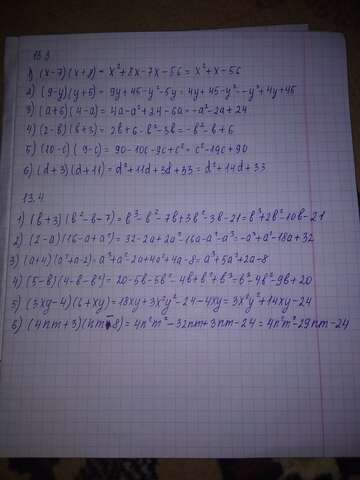 13.3
1) (x-7)(x+8) = x²+8x-7x-56 = x²+x-56
2) (9-y)(y+5) = 9y+45-y²-5y = 4y+45-y² = -y²+4y+45
3) (a+6)(4-a) = 4a-a²+24-6a = -a²-2a+24
4) (2-b)(b+3) = 2b+6-b²-3b = -b²-b+6
5) (10-c)(9-c) = 90-10c-9c+c² = c²-19c+90
6) (d+3)(d+11) = d²+11d+3d+33 = d²+14d+33
13.4
1) (b+3)(b²-b-7) = b³-b²-7b+3b²-3b-21 = b³+2b²-10b-21
2) (2-a)(16-a+a²) = 32-2a+2a²-16a-a²-a³ = -a³+a²-18a+32
3) (a+4)(a²+a-2) = a³+a²-2a+4a²+4a-8 = a³+5a²+2a-8
4) (5-b)(4-b-b²) = 20-5b-5b²-4b+b²+b³ = b³-4b²-9b+20
5) (3xy-4)(6+xy) = 18xy+3x²y²-24-4xy = 3x²y²+14xy-24
6) (4nm+3)(nm-8) = 4n²m²-32nm+3nm-24 = 4n²m²-29nm-24